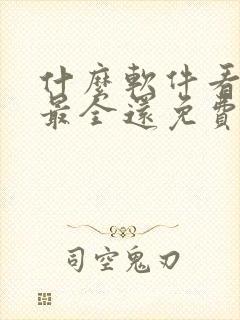 什麼軟件看
最全還免費
司空鬼刃